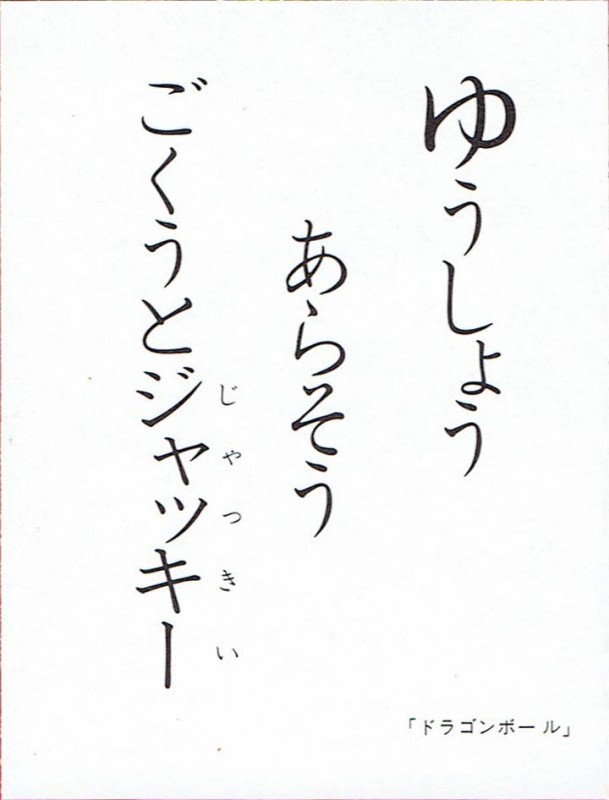 ゆうしょう
あらそう
ごくうとジャッキー
じゃっきい
「ドラゴンボール」